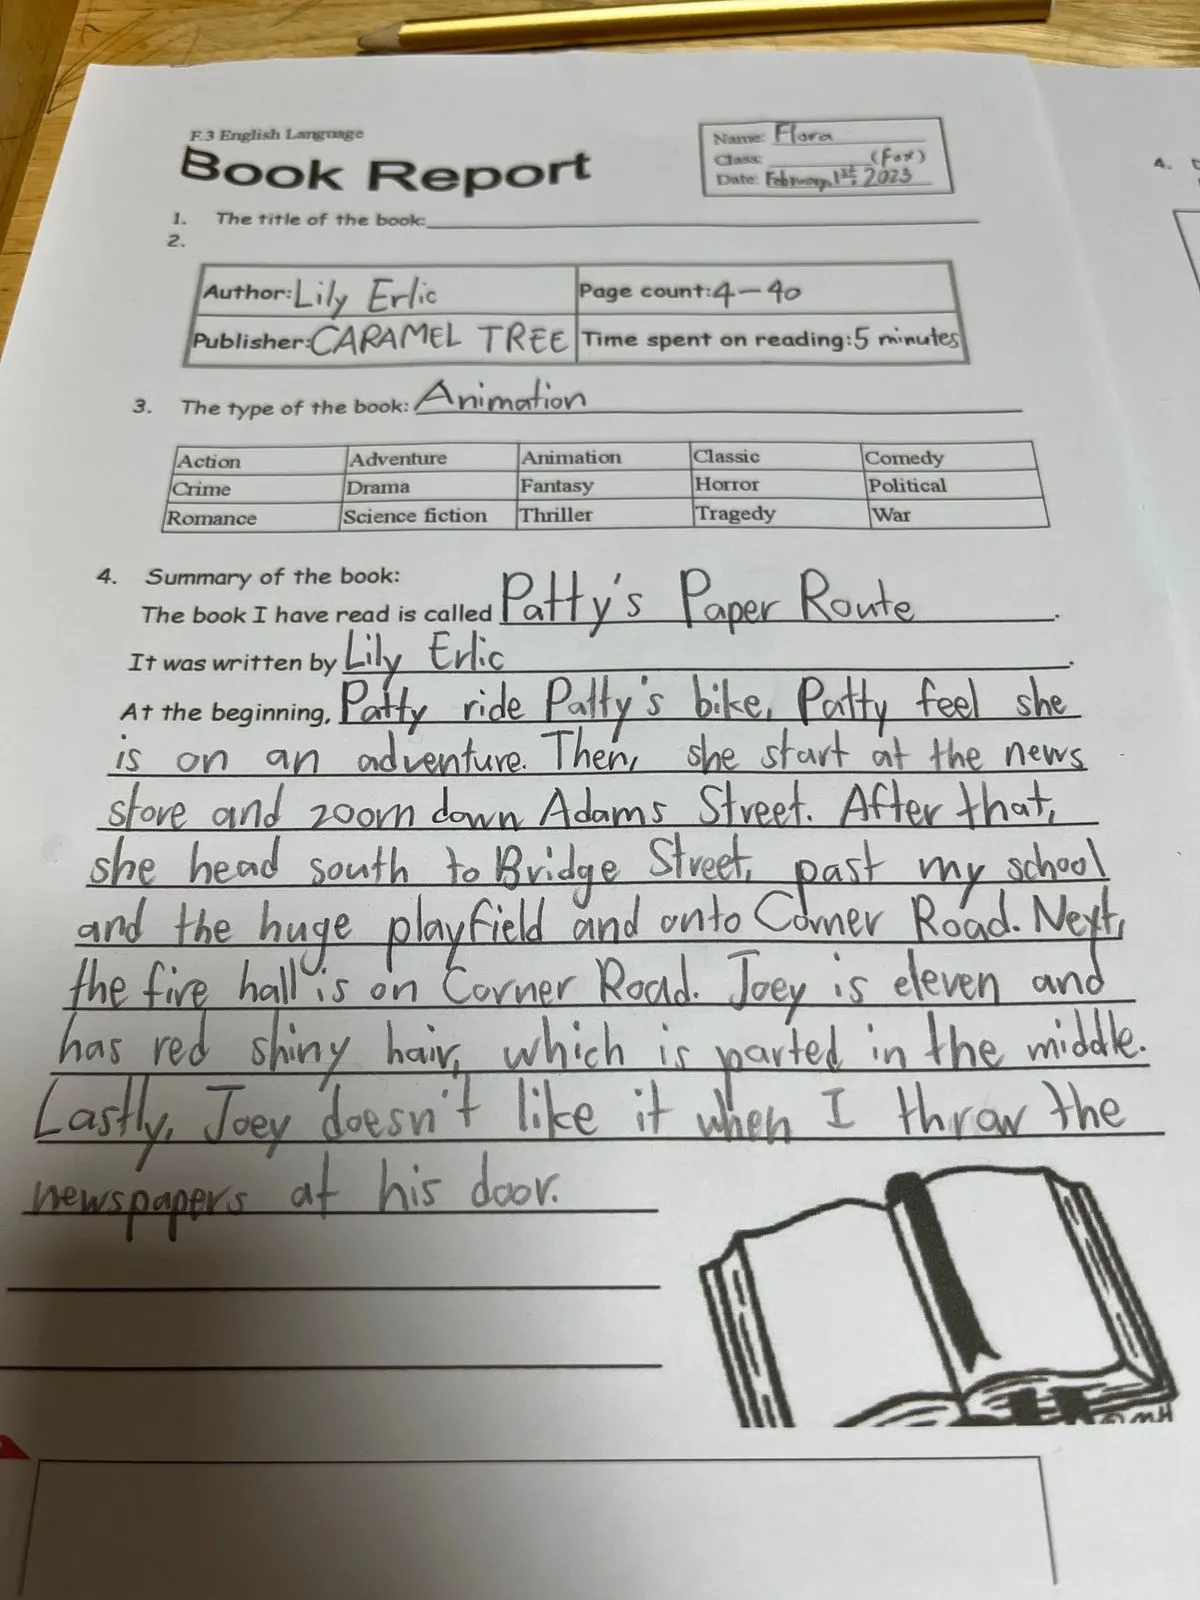 F.3 English Language
Book Report
Name: Flora
Class: (Fox)
Date: February, 1st, 2023
1. The title of the book:
2.
Author: Lily Erlic Page count: 4-40
Publisher: CARAMEL TREE Time spent on reading: 5 minutes
3. The type of the book: Animation
Action Adventure Animation Classic Comedy
Crime Drama Fantasy Horror Political
Romance Science fiction Thriller Tragedy War
4. Summary of the book:
The book I have read is called Patty's Paper Route.
It was written by Lily Erlic.
At the beginning, Patty ride Patty's bike, Patty feel she
is on an adventure. Then, she start at the news
store and zoom down Adams Street. After that,
she head south to Bridge Street, past my school
and the huge playfield and onto Corner Road. Next,
the fire hall is on Corner Road. Joey is eleven and
has red shiny hair, which is parted in the middle.
Lastly, Joey doesn't like it when I throw the
newspapers at his door.
©MH
4.